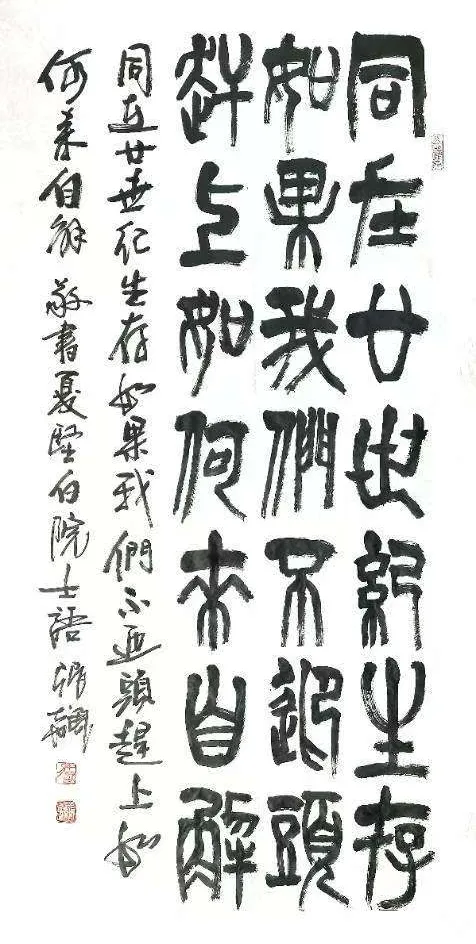 同在廿世紀生存
如果我們不迎頭
赶上如何来自解
同在廿世紀生存如果我們不迎頭趕上如
何来自解 敬書夏堅白院士語